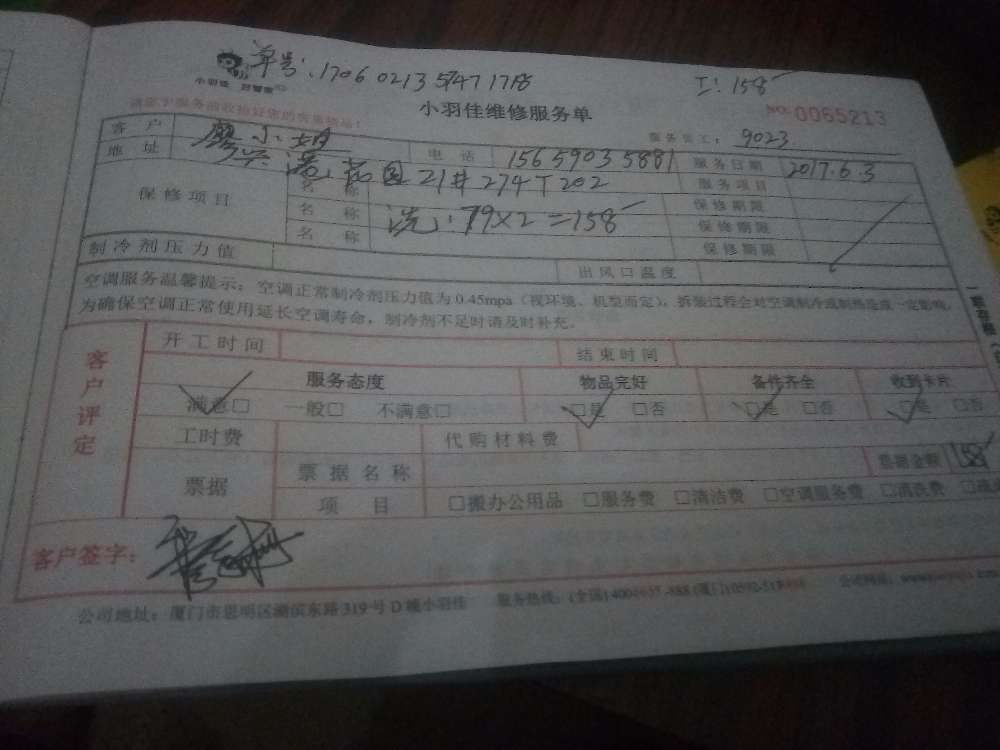 单号:1706021354711718 工:158
小羽佳 好管家
小羽佳维修服务单 NO:0065213
服务员工: 9023
客户 廖小姐 电话 15659035881 服务日期 2017.6.3
地址 花园21#274T202
保修项目 名称 服务项目
名称 洗:79X2=158 保修期限
名称 保修期限
保修期限
制冷剂压力值 出风口温度
空调服务温馨提示:空调正常制冷剂压力值为0.45mpa(视环境、机型而定),拆装过程会对空调制冷或制热造成一定影响,
为确保空调正常使用延长空调寿命,制冷剂不足时请及时补充。
客户评定
开工时间 结束时间
服务态度 物品完好 备件齐全 收到卡片
满意□ 一般□ 不满意□ □是 □否 □是 □否 □是 □否
工时费 代购材料费
票据 票据名称 票据金额 158
项目 □搬办公用品 □服务费 □清洁费 □空调服务费 □清洗费
客户签字:
公司地址:厦门市思明区湖滨东路319号D幢小羽佳 服务热线:(全国)400 -888(厦门)0592-51 公司网站:www